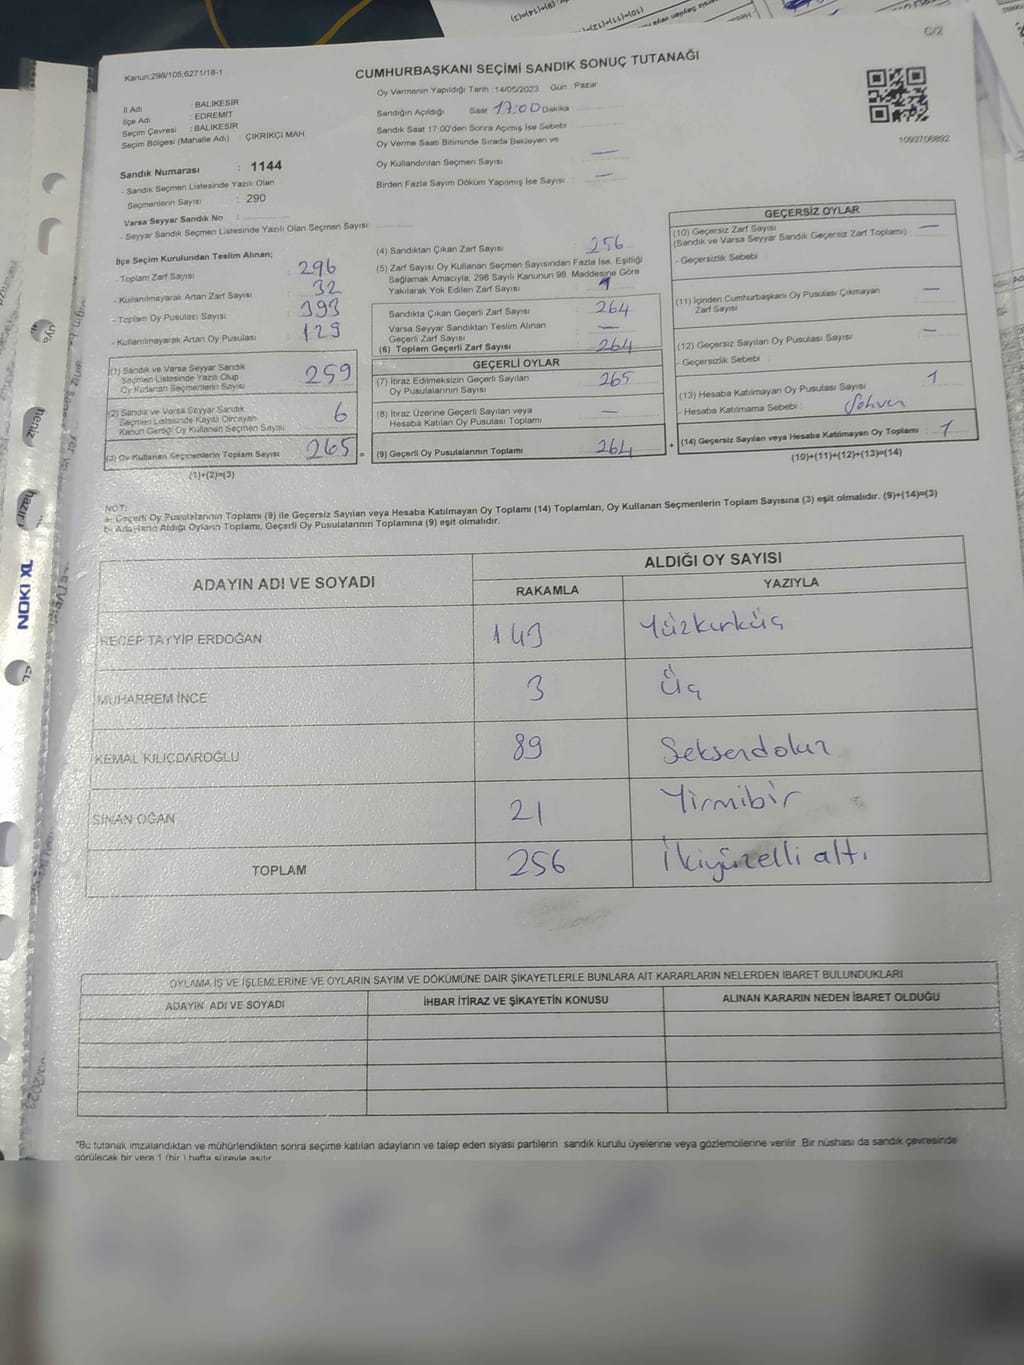 C/2
Kanun:298/105,6271/18-1
CUMHURBAŞKANI SEÇİMİ SANDIK SONUÇ TUTANAĞI
Oy Vermenin Yapıldığı Tarih :14/05/2023 Gün : Pazar
İl Adı : BALIKESİR
İlçe Adı : EDREMİT
Seçim Çevresi : BALIKESİR
Seçim Bölgesi (Mahalle Adı) : ÇIKRIKÇI MAH
Sandığın Açıldığı Saat 17:00 Dakika
Sandık Saat 17:00'den Sonra Açımış İse Sebebi
Oy Verme Saati Bitiminde Sırada Bekleyen ve
Oy Kullandırılan Seçmen Sayısı : —
Birden Fazla Sayım Döküm Yapılmış İse Sayısı : —
1093706892
Sandık Numarası : 1144
- Sandık Seçmen Listesinde Yazılı Olan
Seçmenlerin Sayısı : 290
Varsa Seyyar Sandık No :
- Seyyar Sandık Seçmen Listesinde Yazılı Olan Seçmen Sayısı
İlçe Seçim Kurulundan Teslim Alınan;
- Toplam Zarf Sayısı : 296
- Kullanılmayarak Artan Zarf Sayısı : 32
- Toplam Oy Pusulası Sayısı : 393
- Kullanılmayarak Artan Oy Pusulası : 129
(1) Sandık ve Varsa Seyyar Sandık
Seçmen Listesinde Yazılı Olup
Oy Kullanan Seçmenlerin Sayısı 259
(2) Sandık ve Varsa Seyyar Sandık
Seçmen Listesinde Kaydı Olmayan
Kanun Gereği Oy Kullanan Seçmen Sayısı 6
(3) Oy Kullanan Seçmenlerin Toplam Sayısı 265 =
(1)+(2)=(3)
(4) Sandıktan Çıkan Zarf Sayısı : 256
(5) Zarf Sayısı Oy Kullanan Seçmen Sayısından Fazla İse, Eşitliği
Sağlamak Amacıyla, 298 Sayılı Kanunun 98. Maddesine Göre
Yakılarak Yok Edilen Zarf Sayısı
Sandıkta Çıkan Geçerli Zarf Sayısı : 264
Varsa Seyyar Sandıktan Teslim Alınan
Geçerli Zarf Sayısı : —
(6) Toplam Geçerli Zarf Sayısı 264
GEÇERLİ OYLAR
(7) İtiraz Edilmeksizin Geçerli Sayılan
Oy Pusulalarının Sayısı 265
(8) İtiraz Üzerine Geçerli Sayılan veya
Hesaba Katılan Oy Pusulası Toplamı : —
(9) Geçerli Oy Pusulalarının Toplamı : 264 +
GEÇERSİZ OYLAR
(10) Geçersiz Zarf Sayısı
(Sandık ve Varsa Seyyar Sandık Geçersiz Zarf Toplamı) —
- Geçersizlik Sebebi
(11) İçinden Cumhurbaşkanı Oy Pusulası Çıkmayan
Zarf Sayısı —
(12) Geçersiz Sayılan Oy Pusulası Sayısı —
- Geçersizlik Sebebi :
(13) Hesaba Katılmayan Oy Pusulası Sayısı 1
- Hesaba Katılmama Sebebi :
(14) Geçersiz Sayılan veya Hesaba Katılmayan Oy Toplamı 1
(10)+(11)+(12)+(13)=(14)
NOT:
a- Geçerli Oy Pusulalarının Toplamı (9) ile Geçersiz Sayılan veya Hesaba Katılmayan Oy Toplamı (14) Toplamları, Oy Kullanan Seçmenlerin Toplam Sayısına (3) eşit olmalıdır. (9)+(14)=(3)
b- Adayların Aldığı Oyların Toplamı, Geçerli Oy Pusulalarının Toplamına (9) eşit olmalıdır.
ADAYIN ADI VE SOYADI
ALDIĞI OY SAYISI
RAKAMLA YAZIYLA
RECEP TAYYİP ERDOĞAN 143 Yüzkırküç
MUHARREM İNCE 3 Üç
KEMAL KILIÇDAROĞLU 89 Seksendokuz
SİNAN OĞAN 21 Yirmibir
TOPLAM 256 İkiyüzelli altı
OYLAMA İŞ VE İŞLEMLERİNE VE OYLARIN SAYIM VE DÖKÜMÜNE DAİR ŞİKAYETLERLE BUNLARA AİT KARARLARIN NELERDEN İBARET BULUNDUKLARI
ADAYIN ADI VE SOYADI İHBAR İTİRAZ VE ŞİKAYETİN KONUSU ALINAN KARARIN NEDEN İBARET OLDUĞU
*Bu tutanak imzalandıktan ve mühürlendikten sonra seçime katılan adayların ve talep eden siyasi partilerin sandık kurulu üyelerine veya gözlemcilerine verilir. Bir nüshası da sandık çevresinde
görülecek bir yere 1 (bir) hafta süreyle asılır.
NOKI XL